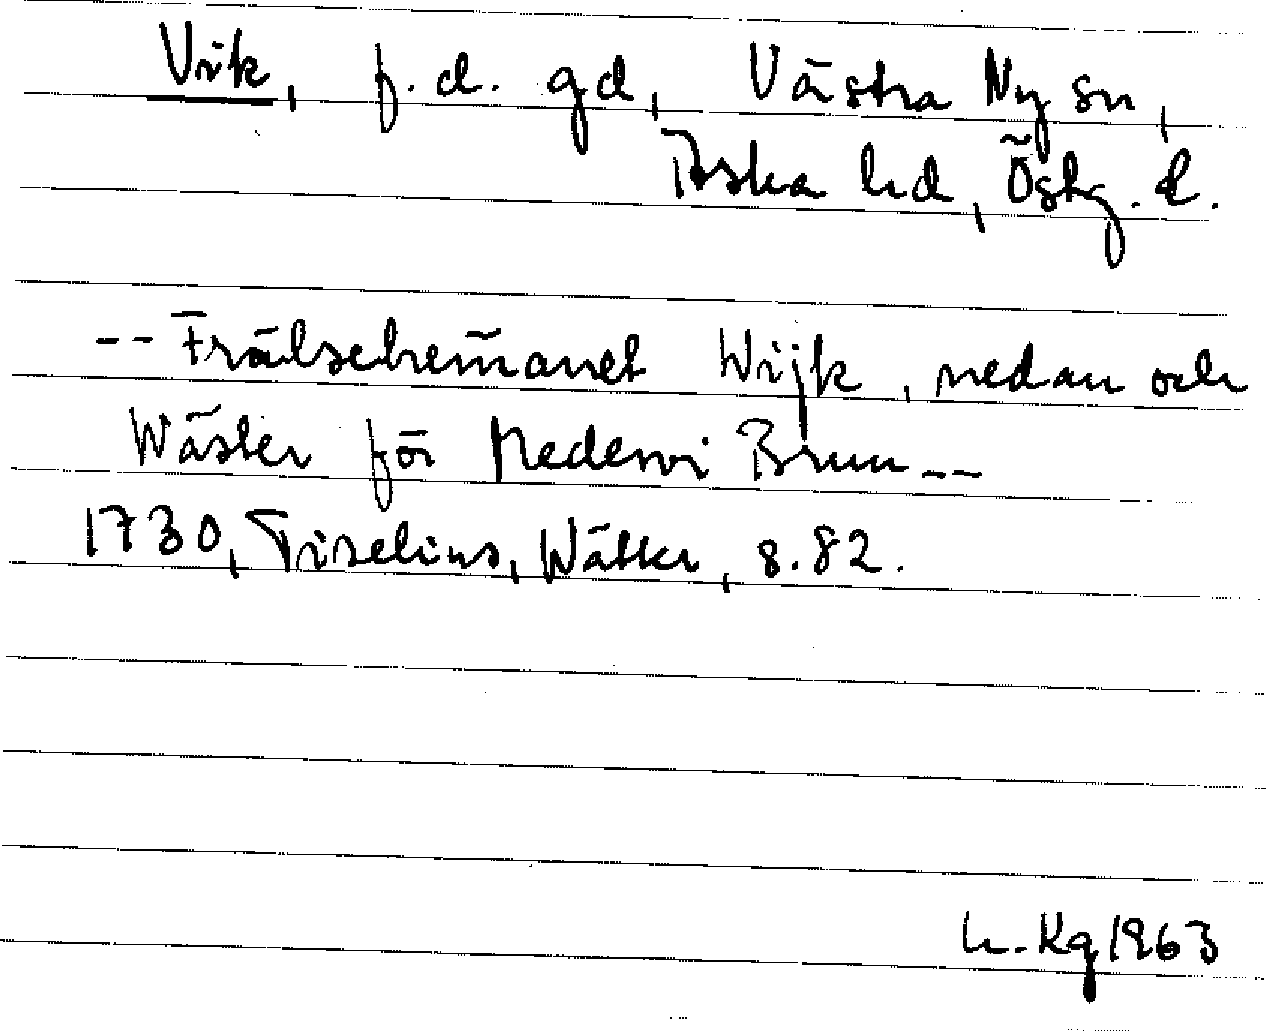 Vik, f.d. gd, Västra Ny sn,
Aska hd, Östg. l.
-- Frälsehem̄anet Wijk, nedan och
Wäster för Medewi Brun --
1730, Tiselius, Wätter, s. 82.
Kg 1963